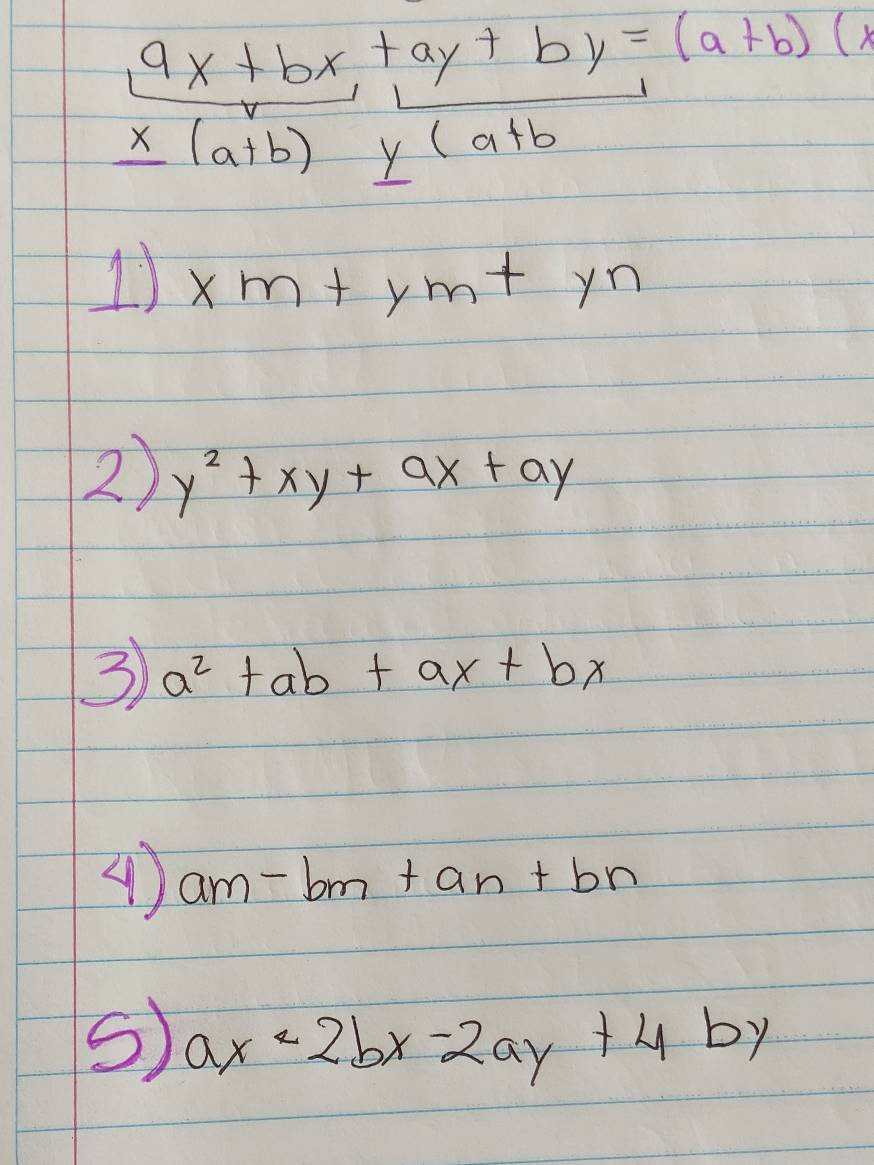 ax + bx + ay + by = (a + b) (x
x (a+b) y (a+b
1) xm + ym + yn
2) y² + xy + ax + ay
3) a² + ab + ax + bx
4) am - bm + an + bn
5) ax - 2bx - 2ay + 4by